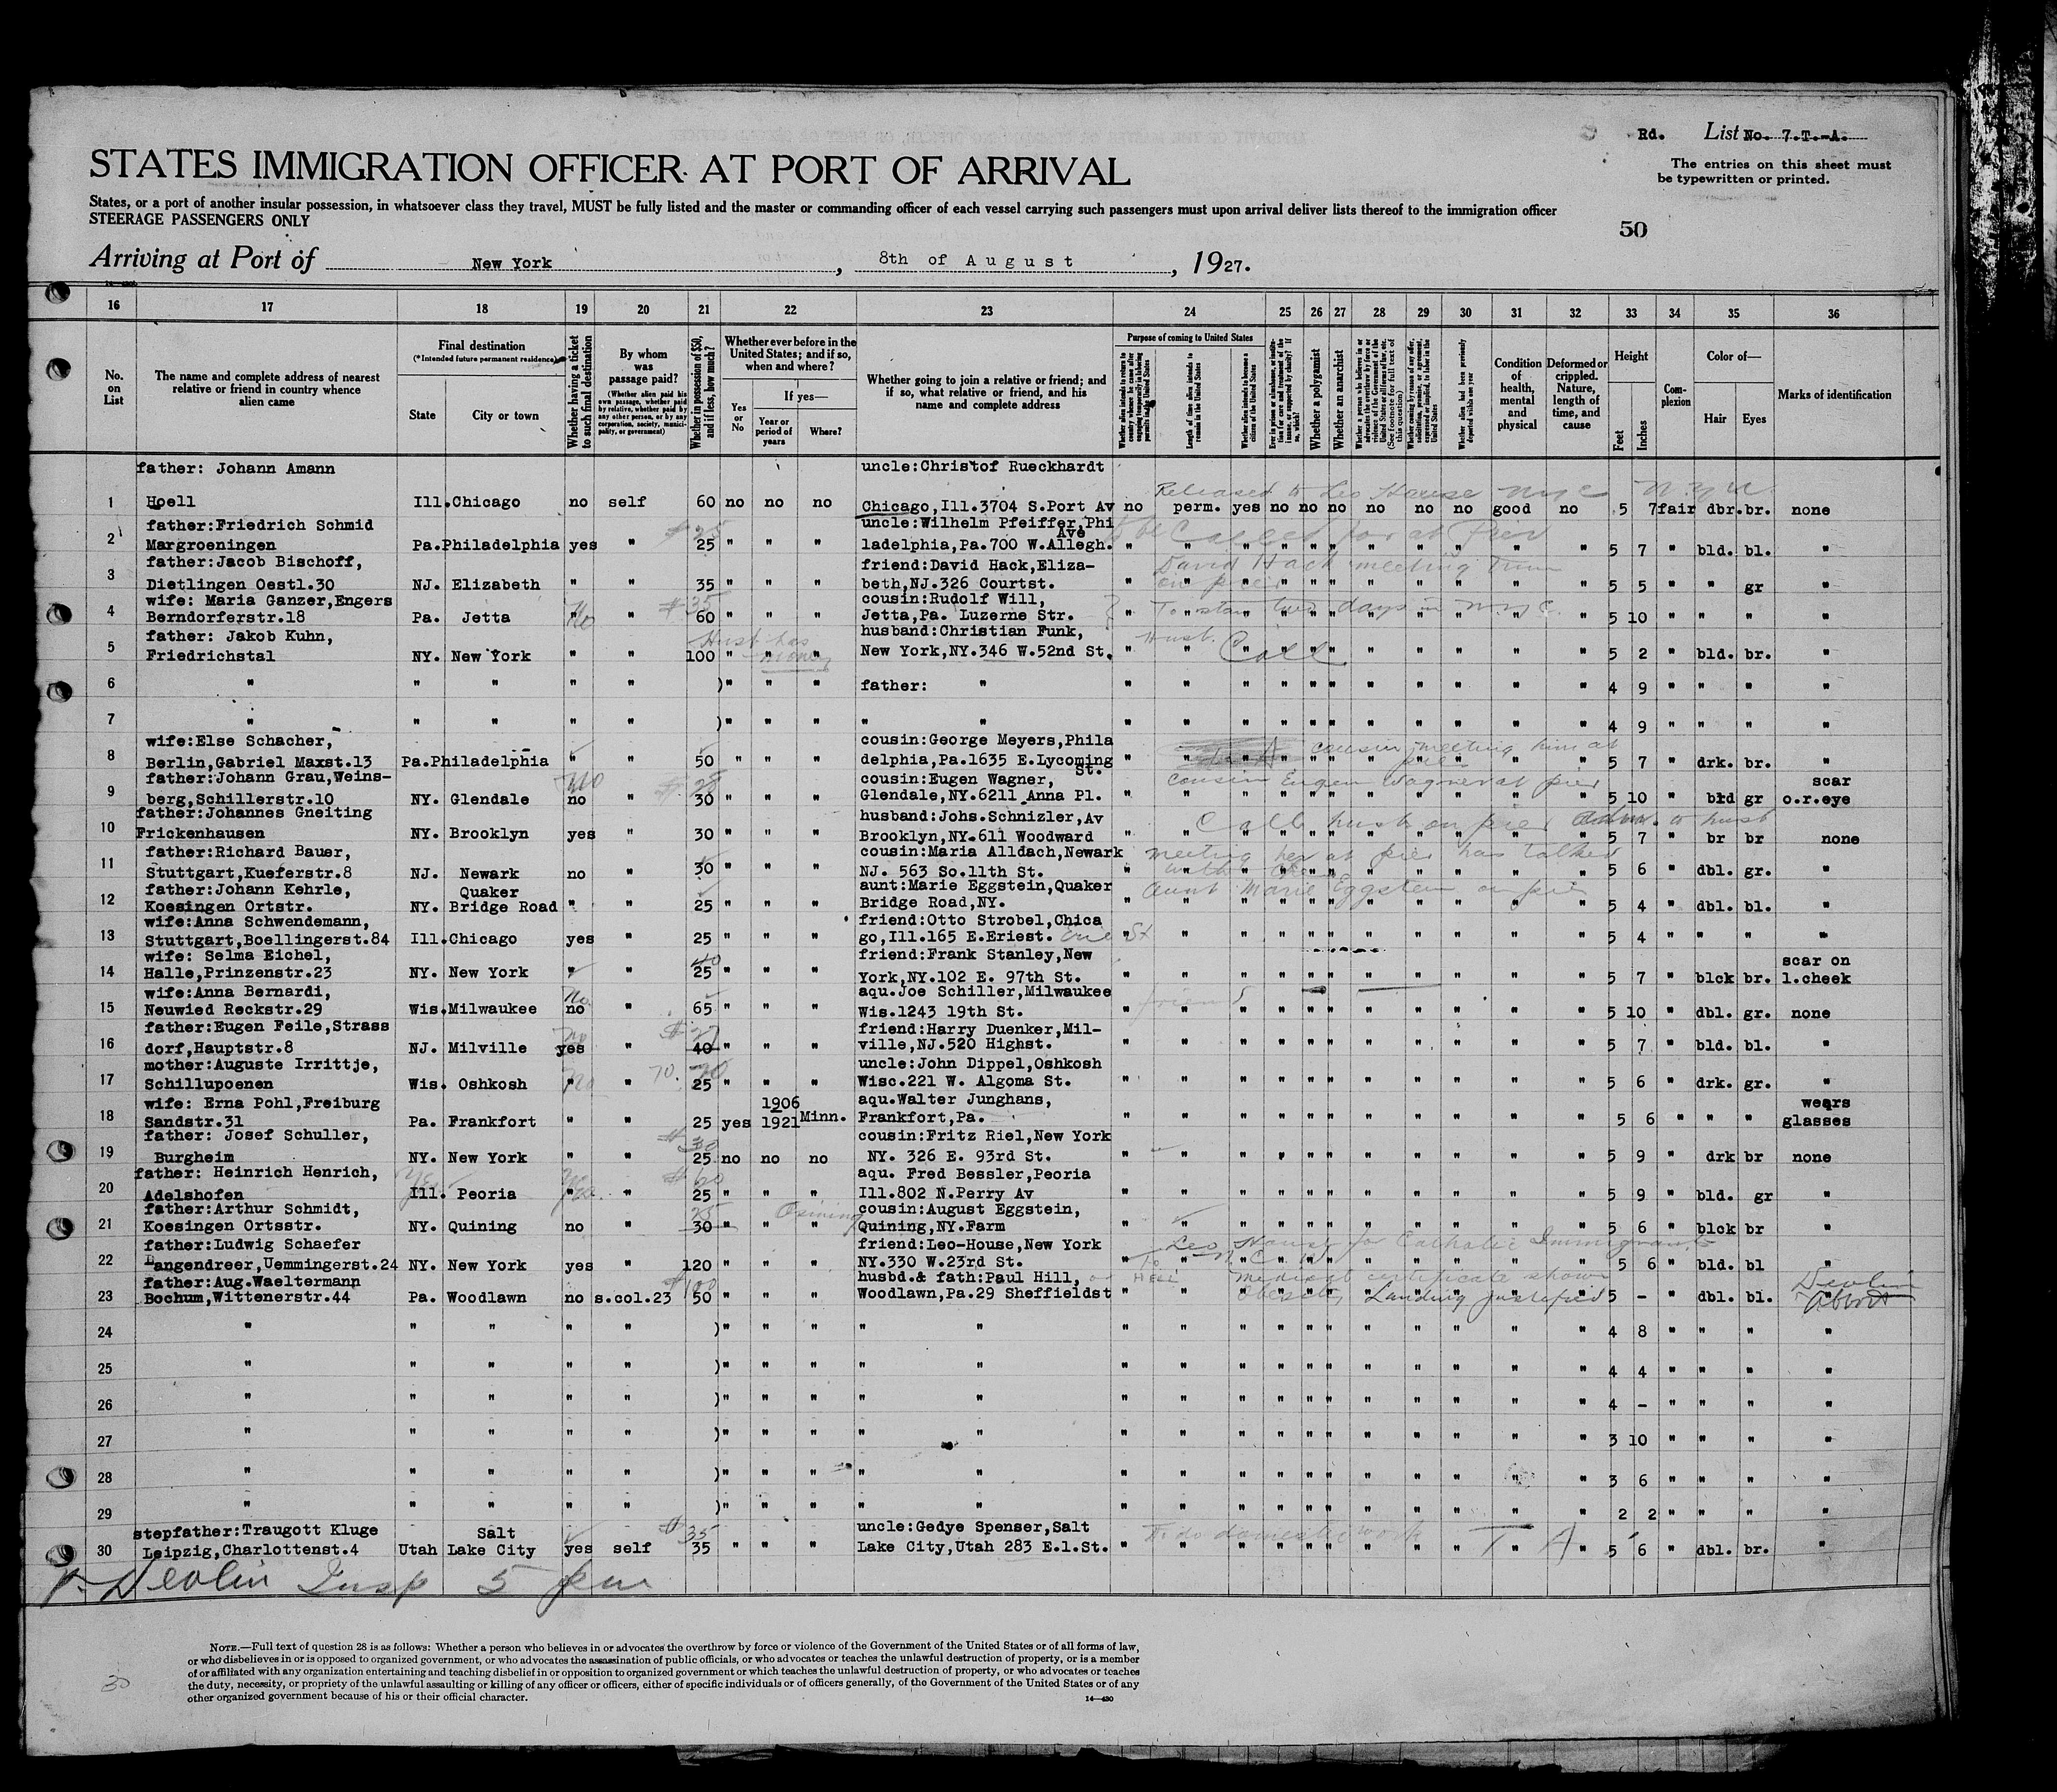 Rd. List No. 7.T.-A.
STATES IMMIGRATION OFFICER AT PORT OF ARRIVAL
The entries on this sheet must
be typewritten or printed.
States, or a port of another insular possession, in whatsoever class they travel, MUST be fully listed and the master or commanding officer of each vessel carrying such passengers must upon arrival deliver lists thereof to the immigration officer
STEERAGE PASSENGERS ONLY
50
Arriving at Port of New York, 8th of August, 1927.
16 17 18 19 20 21 22 23 24 25 26 27 28 29 30 31 32 33 34 35 36
No. on List
The name and complete address of nearest relative or friend in country whence alien came
Final destination
(*Intended future permanent residence)
State City or town
Whether having a ticket to such final destination
By whom was passage paid?
(Whether alien paid his own passage, whether paid by relative, whether paid by any other person, or by any corporation, society, municipality, or government)
Whether in possession of $50, and if less, how much?
Whether ever before in the United States; and if so, when and where?
Yes or No
If yes—
Year or period of years Where?
Whether going to join a relative or friend; and if so, what relative or friend, and his name and complete address
Purpose of coming to United States
Length of time alien intends to remain in the United States
Whether alien intends to become a citizen of the United States
Whether a polygamist
Whether an anarchist
Condition of health, mental and physical
Deformed or crippled. Nature, length of time, and cause
Height
Feet Inches
Complexion
Color of—
Hair Eyes
Marks of identification
father: Johann Amann uncle:Christof Rueckhardt
Released to Leo House NYC
1 Hoell Ill.Chicago no self 60 no no no Chicago,Ill.3704 S.Port Av no perm. yes no no no no no no good no 5 7 fair dbr. br. none
father:Friedrich Schmid uncle:Wilhelm Pfeiffer,Phi
Ave
2 Margroeningen Pa.Philadelphia yes " 25 " " " ladelphia,Pa.700 W.Allegh. " " " " " " " " " " " 5 7 " bld. bl. "
to be Called for at Pier
father:Jacob Bischoff, friend:David Hack,Eliza-
David Hack meeting him
on pier
3 Dietlingen Oestl.30 NJ. Elizabeth " " 35 " " " beth,NJ.326 Courtst. " " " " " " " " " " " 5 5 " " gr "
wife: Maria Ganzer,Engers cousin:Rudolf Will,
To stay two days in N.Y.C.
4 Berndorferstr.18 Pa. Jetta No " 60 " " " Jetta,Pa. Luzerne Str. " " " " " " " " " " " 5 10 " " " "
father: Jakob Kuhn, husband:Christian Funk,
Husb has money
Husb. Call
5 Friedrichstal NY. New York " " 100 " " " New York,NY.346 W.52nd St. " " " " " " " " " " " 5 2 " bld. br. "
6 " " " " " ) " " " father: " " " " " " " " " " " " 4 9 " " " "
7 " " " " " ) " " " " " " " " " " " " " " " " " 4 9 " " " "
wife:Else Schacher, cousin:George Meyers,Phila
cousin meeting him at pier
8 Berlin,Gabriel Maxst.13 Pa.Philadelphia " " 50 " " " delphia,Pa.1635 E.Lycoming St. " " " " " " " " " " " 5 7 " drk. br. "
father:Johann Grau,Weins- cousin:Eugen Wagner, scar
cousin Eugen Wagner at pier
9 berg,Schillerstr.10 NY. Glendale no " 30 " " " Glendale,NY.6211 Anna Pl. " " " " " " " " " " " 5 10 " bld gr o.r.eye
father:Johannes Gneiting husband:Johs.Schnizler,Av
Call husb on pier Admit to husb
10 Frickenhausen NY. Brooklyn yes " 30 " " " Brooklyn,NY.611 Woodward " " " " " " " " " " 5 7 " br br none
father:Richard Bauer, cousin:Maria Alldach,Newark
meeting her at pier has talked with
11 Stuttgart,Kueferstr.8 NJ. Newark no " 30 " " " NJ. 563 So.11th St. " " " " " " " " " " " 5 6 " dbl. gr. "
father:Johann Kehrle, Quaker aunt:Marie Eggstein,Quaker
aunt Marie Eggstein on pier
12 Koesingen Ortstr. NY. Bridge Road " " 25 " " " Bridge Road,NY. " " " " " " " " " " " 5 4 " dbl. bl. "
wife:Anna Schwendemann, friend:Otto Strobel,Chica
13 Stuttgart,Boellingerst.84 Ill.Chicago yes " 25 " " " go,Ill.165 E.Eriest. Erie St " " " " " " " " " " " 5 4 " " " "
wife: Selma Eichel, friend:Frank Stanley,New scar on
14 Halle,Prinzenstr.23 NY. New York " " 25 " " " York,NY.102 E. 97th St. " " " " " " " " " " " 5 7 " blck br. l.cheek
wife:Anna Bernardi, aqu.Joe Schiller,Milwaukee
friend
15 Neuwied Reckstr.29 Wis.Milwaukee no " 65 " " " Wis.1243 19th St. " " " " " " " " " " " 5 10 " dbl. gr. none
father:Eugen Feile,Strass friend:Harry Duenker,Mil-
16 dorf,Hauptstr.8 NJ. Milville yes " 40 " " " ville,NJ.520 Highst. " " " " " " " " " " " 5 7 " bld. bl. "
mother:Auguste Irrittje, uncle:John Dippel,Oshkosh
17 Schillupoenen Wis. Oshkosh " " 25 " " " Wisc.221 W. Algoma St. " " " " " " " " " " " 5 6 " drk. gr. "
wife: Erna Pohl,Freiburg 1906 aqu.Walter Junghans, wears
18 Sandstr.31 Pa. Frankfort " " 25 yes 1921 Minn. Frankfort,Pa. " " " " " " " " " " " 5 6 " " " glasses
father: Josef Schuller, cousin:Fritz Riel,New York
19 Burgheim NY. New York " " 25 no no no NY. 326 E. 93rd St. " " " " " " " " " " " 5 9 " drk br none
father: Heinrich Henrich, aqu. Fred Bessler,Peoria
20 Adelshofen Ill. Peoria " " 25 " " " Ill.802 N.Perry Av " " " " " " " " " " " 5 9 " bld. gr "
father:Arthur Schmidt, cousin:August Eggstein,
Ossining
21 Koesingen Ortsstr. NY. Quining no " 30 " " " Quining,NY.Farm " " " " " " " " " " " 5 6 " blck br "
father:Ludwig Schaefer friend:Leo-House,New York
Leo House for Catholic Immigrants
22 Langendreer,Uemmingerst.24 NY. New York yes " 120 " " " NY.330 W.23rd St. " " " " " " " " " " " 5 6 " bld. bl "
father:Aug.Waeltermann husbd.& fath:Paul Hill,
HELL medical certificate shows
obesity Landing justified
Devlin
Abbott
23 Bochum,Wittenerstr.44 Pa. Woodlawn no s.col.23 50 " " " Woodlawn,Pa.29 Sheffieldst " " " " " " " " " " " 5 - " dbl. bl. "
24 " " " " " ) " " " " " " " " " " " " " " " " " 4 8 " " " "
25 " " " " " ) " " " " " " " " " " " " " " " " " 4 4 " " " "
26 " " " " " ) " " " " " " " " " " " " " " " " " 4 - " " " "
27 " " " " " ) " " " " " " " " " " " " " " " " " 3 10 " " " "
28 " " " " " ) " " " " " " " " " " " " " " " " " 3 6 " " " "
29 " " " " " ) " " " " " " " " " " " " " " " " " 2 2 " " " "
stepfather:Traugott Kluge Salt uncle:Gedye Spenser,Salt
To do domestic work T A
30 Leipzig,Charlottenst.4 Utah Lake City yes self 35 " " " Lake City,Utah 283 E.1.St. " " " " " " " " " " " 5 6 " dbl. br. "
Devlin Insp 5 pm
NOTE.—Full text of question 28 is as follows: Whether a person who believes in or advocates the overthrow by force or violence of the Government of the United States or of all forms of law,
or who disbelieves in or is opposed to organized government, or who advocates the assassination of public officials, or who advocates or teaches the unlawful destruction of property, or is a member
of or affiliated with any organization entertaining and teaching disbelief in or opposition to organized government or which teaches the unlawful destruction of property, or who advocates or teaches
the duty, necessity, or propriety of the unlawful assaulting or killing of any officer or officers, either of specific individuals or of officers generally, of the Government of the United States or of any
other organized government because of his or their official character.
14—430
30